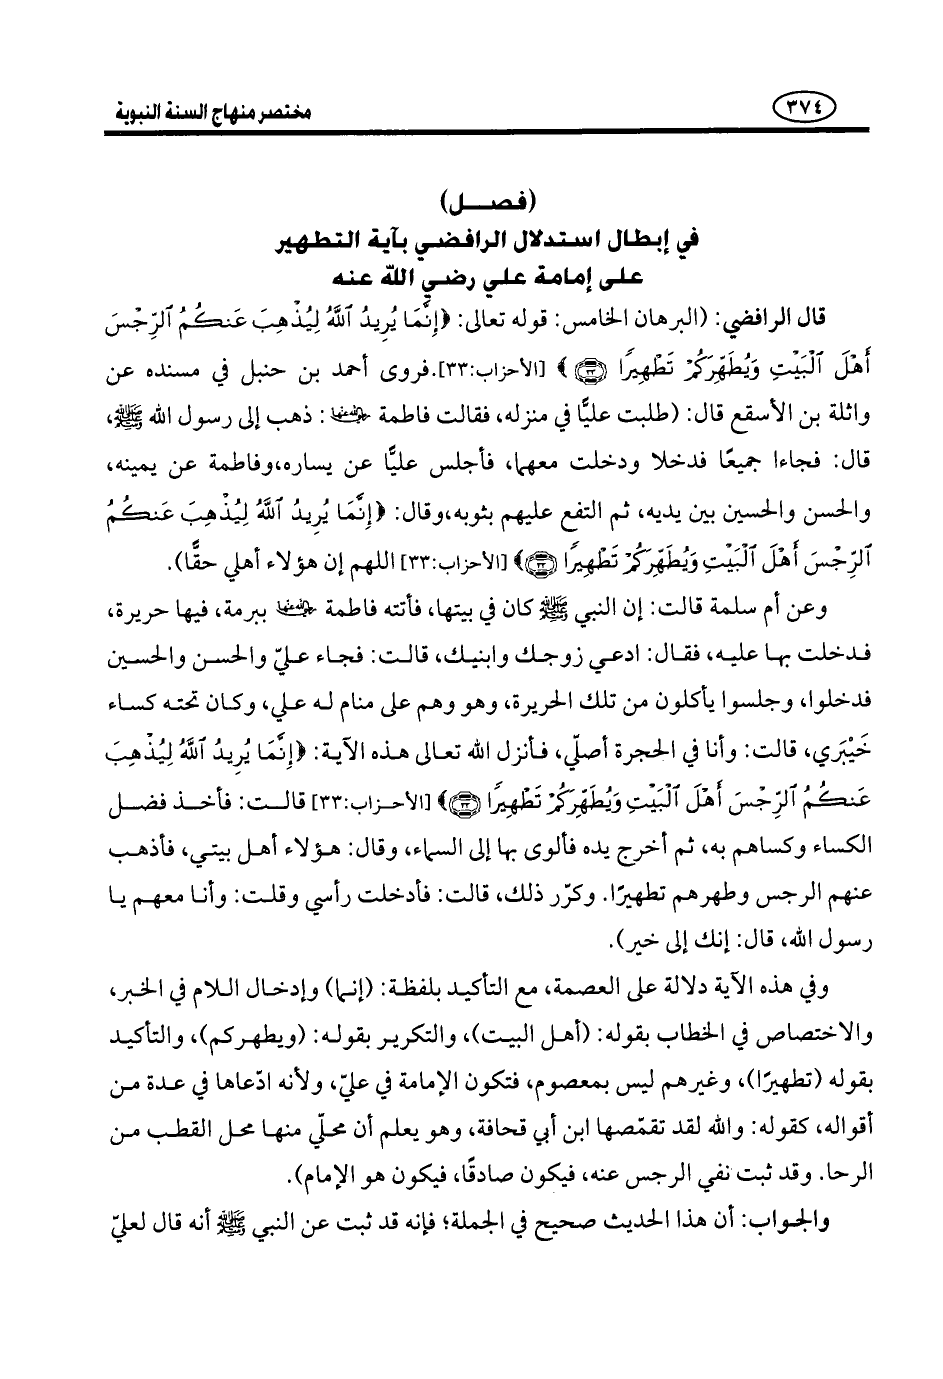 ٣٧٤ مختصر منهاج السنة النبوية
(فصـــل)
في إبطال استدلال الرافضي بآية التطهير
على إمامة علي رضي الله عنه
قال الرافضي: (البرهان الخامس: قوله تعالى: ﴿إِنَّمَا يُرِيدُ ٱللَّهُ لِيُذْهِبَ عَنكُمُ ٱلرِّجْسَ
أَهْلَ ٱلْبَيْتِ وَيُطَهِّرَكُمْ تَطْهِيرًا ٣٣﴾ [الأحزاب:٣٣].فروى أحمد بن حنبل في مسنده عن
واثلة بن الأسقع قال: (طلبت عليًّا في منزله، فقالت فاطمة رضي الله عنها : ذهب إلى رسول الله ﷺ،
قال: فجاءا جميعًا فدخلا ودخلت معهما، فأجلس عليًّا عن يساره،وفاطمة عن يمينه،
والحسن والحسين بين يديه، ثم التفع عليهم بثوبه،وقال: ﴿إِنَّمَا يُرِيدُ ٱللَّهُ لِيُذْهِبَ عَنكُمُ
ٱلرِّجْسَ أَهْلَ ٱلْبَيْتِ وَيُطَهِّرَكُمْ تَطْهِيرًا ٣٣﴾ [الأحزاب:٣٣] اللهم إن هؤلاء أهلي حقًّا).
وعن أم سلمة قالت: إن النبي ﷺ كان في بيتها، فأتته فاطمة رضي الله عنها ببرمة، فيها حريرة،
فدخلت بها عليه، فقال: ادعي زوجك وابنيك، قالت: فجاء عليّ والحسن والحسين
فدخلوا، وجلسوا يأكلون من تلك الحريرة، وهو وهم على منام له علي، وكان تحته كساء
خَيْبَري، قالت: وأنا في الحجرة أصلّي، فأنزل الله تعالى هذه الآية: ﴿إِنَّمَا يُرِيدُ ٱللَّهُ لِيُذْهِبَ
عَنكُمُ ٱلرِّجْسَ أَهْلَ ٱلْبَيْتِ وَيُطَهِّرَكُمْ تَطْهِيرًا ٣٣﴾ [الأحزاب:٣٣] قالت: فأخذ فضل
الكساء وكساهم به، ثم أخرج يده فألوى بها إلى السماء، وقال: هؤلاء أهل بيتي، فأذهب
عنهم الرجس وطهرهم تطهيرًا. وكرّر ذلك، قالت: فأدخلت رأسي وقلت: وأنا معهم يا
رسول الله، قال: إنك إلى خير).
وفي هذه الآية دلالة على العصمة، مع التأكيد بلفظة: (إنما) وإدخال اللام في الخبر،
والاختصاص في الخطاب بقوله: (أهل البيت)، والتكرير بقوله: (ويطهركم)، والتأكيد
بقوله (تطهيرًا)، وغيرهم ليس بمعصوم، فتكون الإمامة في عليّ، ولأنه ادّعاها في عدة من
أقواله، كقوله: والله لقد تقمّصها ابن أبي قحافة، وهو يعلم أن محلّي منها محل القطب من
الرحا. وقد ثبت نفي الرجس عنه، فيكون صادقًا، فيكون هو الإمام).
والجواب: أن هذا الحديث صحيح في الجملة؛ فإنه قد ثبت عن النبي ﷺ أنه قال لعليّ